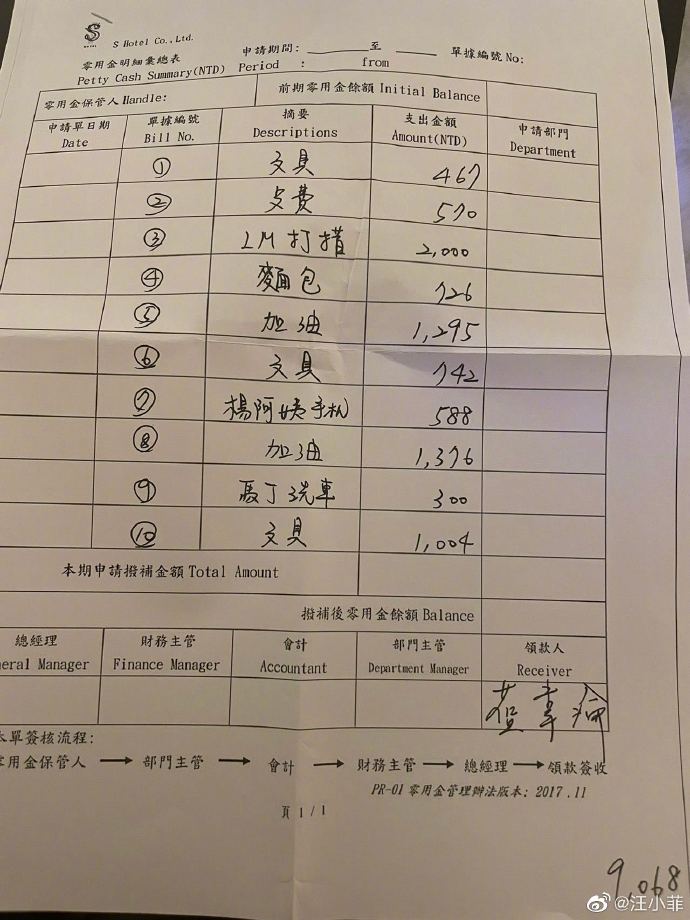 S
S Hotel Co.,Ltd.
零用金明細彙總表 申請期間: 至 單據編號 No:
Petty Cash Summary(NTD) Period : from
零用金保管人 Handle: 前期零用金餘額 Initial Balance
申請單日期 單據編號 摘要 支出金額 申請部門
Date Bill No. Descriptions Amount(NTD) Department
① 文具 467
② 餐費 570
③ LM 打掃 2,000
④ 麵包 726
⑤ 加油 1,295
⑥ 文具 742
⑦ 楊阿姨手机 588
⑧ 加油 1,376
⑨ 馬丁洗車 300
⑩ 文具 1,004
本期申請撥補金額 Total Amount
撥補後零用金餘額 Balance
總經理 財務主管 會計 部門主管 領款人
neral Manager Finance Manager Accountant Department Manager Receiver
本單簽核流程:
零用金保管人 → 部門主管 → 會計 → 財務主管 → 總經理 → 領款簽收
PR-01 零用金管理辦法版本: 2017.11
頁 1 / 1
9,068
@汪小菲